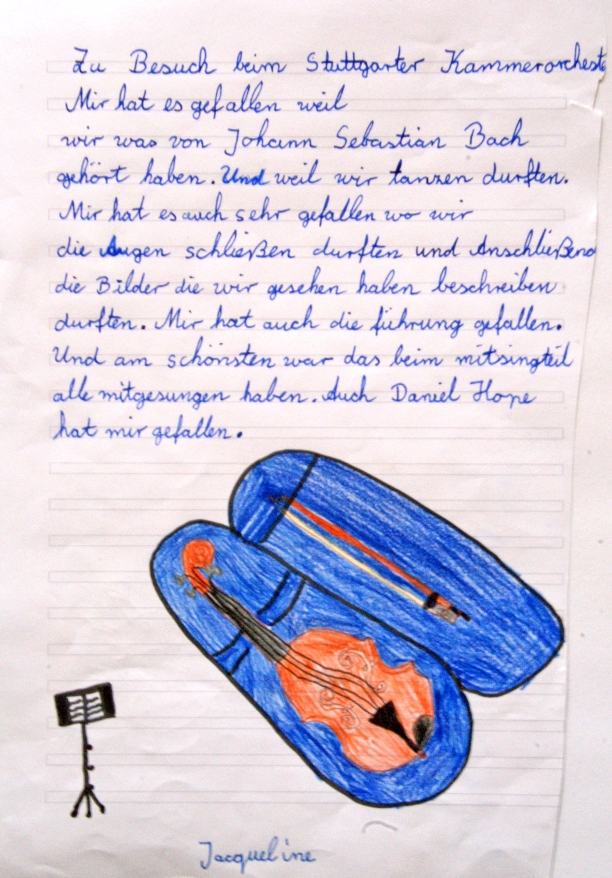 Zu Besuch beim Stuttgarter Kammerorcheste
Mir hat es gefallen weil
wir was von Johann Sebastian Bach
gehört haben. Und weil wir tanzen durften.
Mir hat es auch sehr gefallen wo wir
die Augen schließen durften und Anschließend
die Bilder die wir gesehen haben beschreiben
durften. Mir hat auch die führung gefallen.
Und am schönsten war das beim mitsingteil
alle mitgesungen haben. Auch Daniel Hope
hat mir gefallen.
Jacqueline